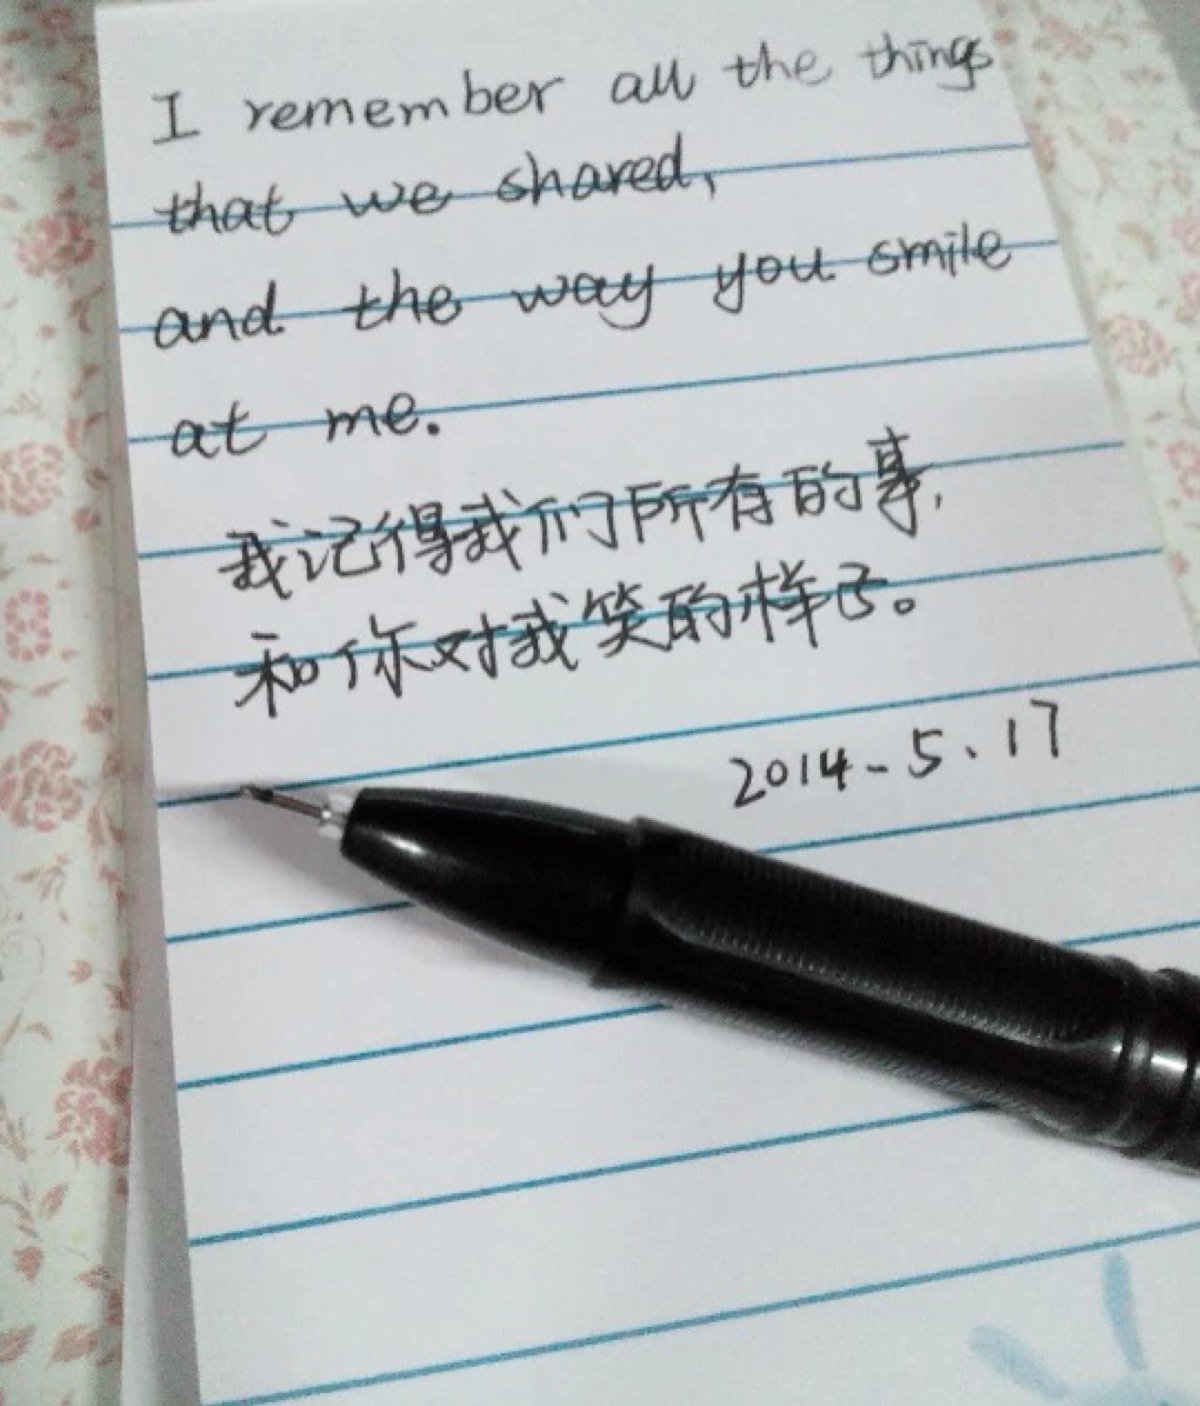 I remember all the things
that we shared,
and the way you smile
at me.
我记得我们所有的事,
和你对我笑的样子。
2014-5、17